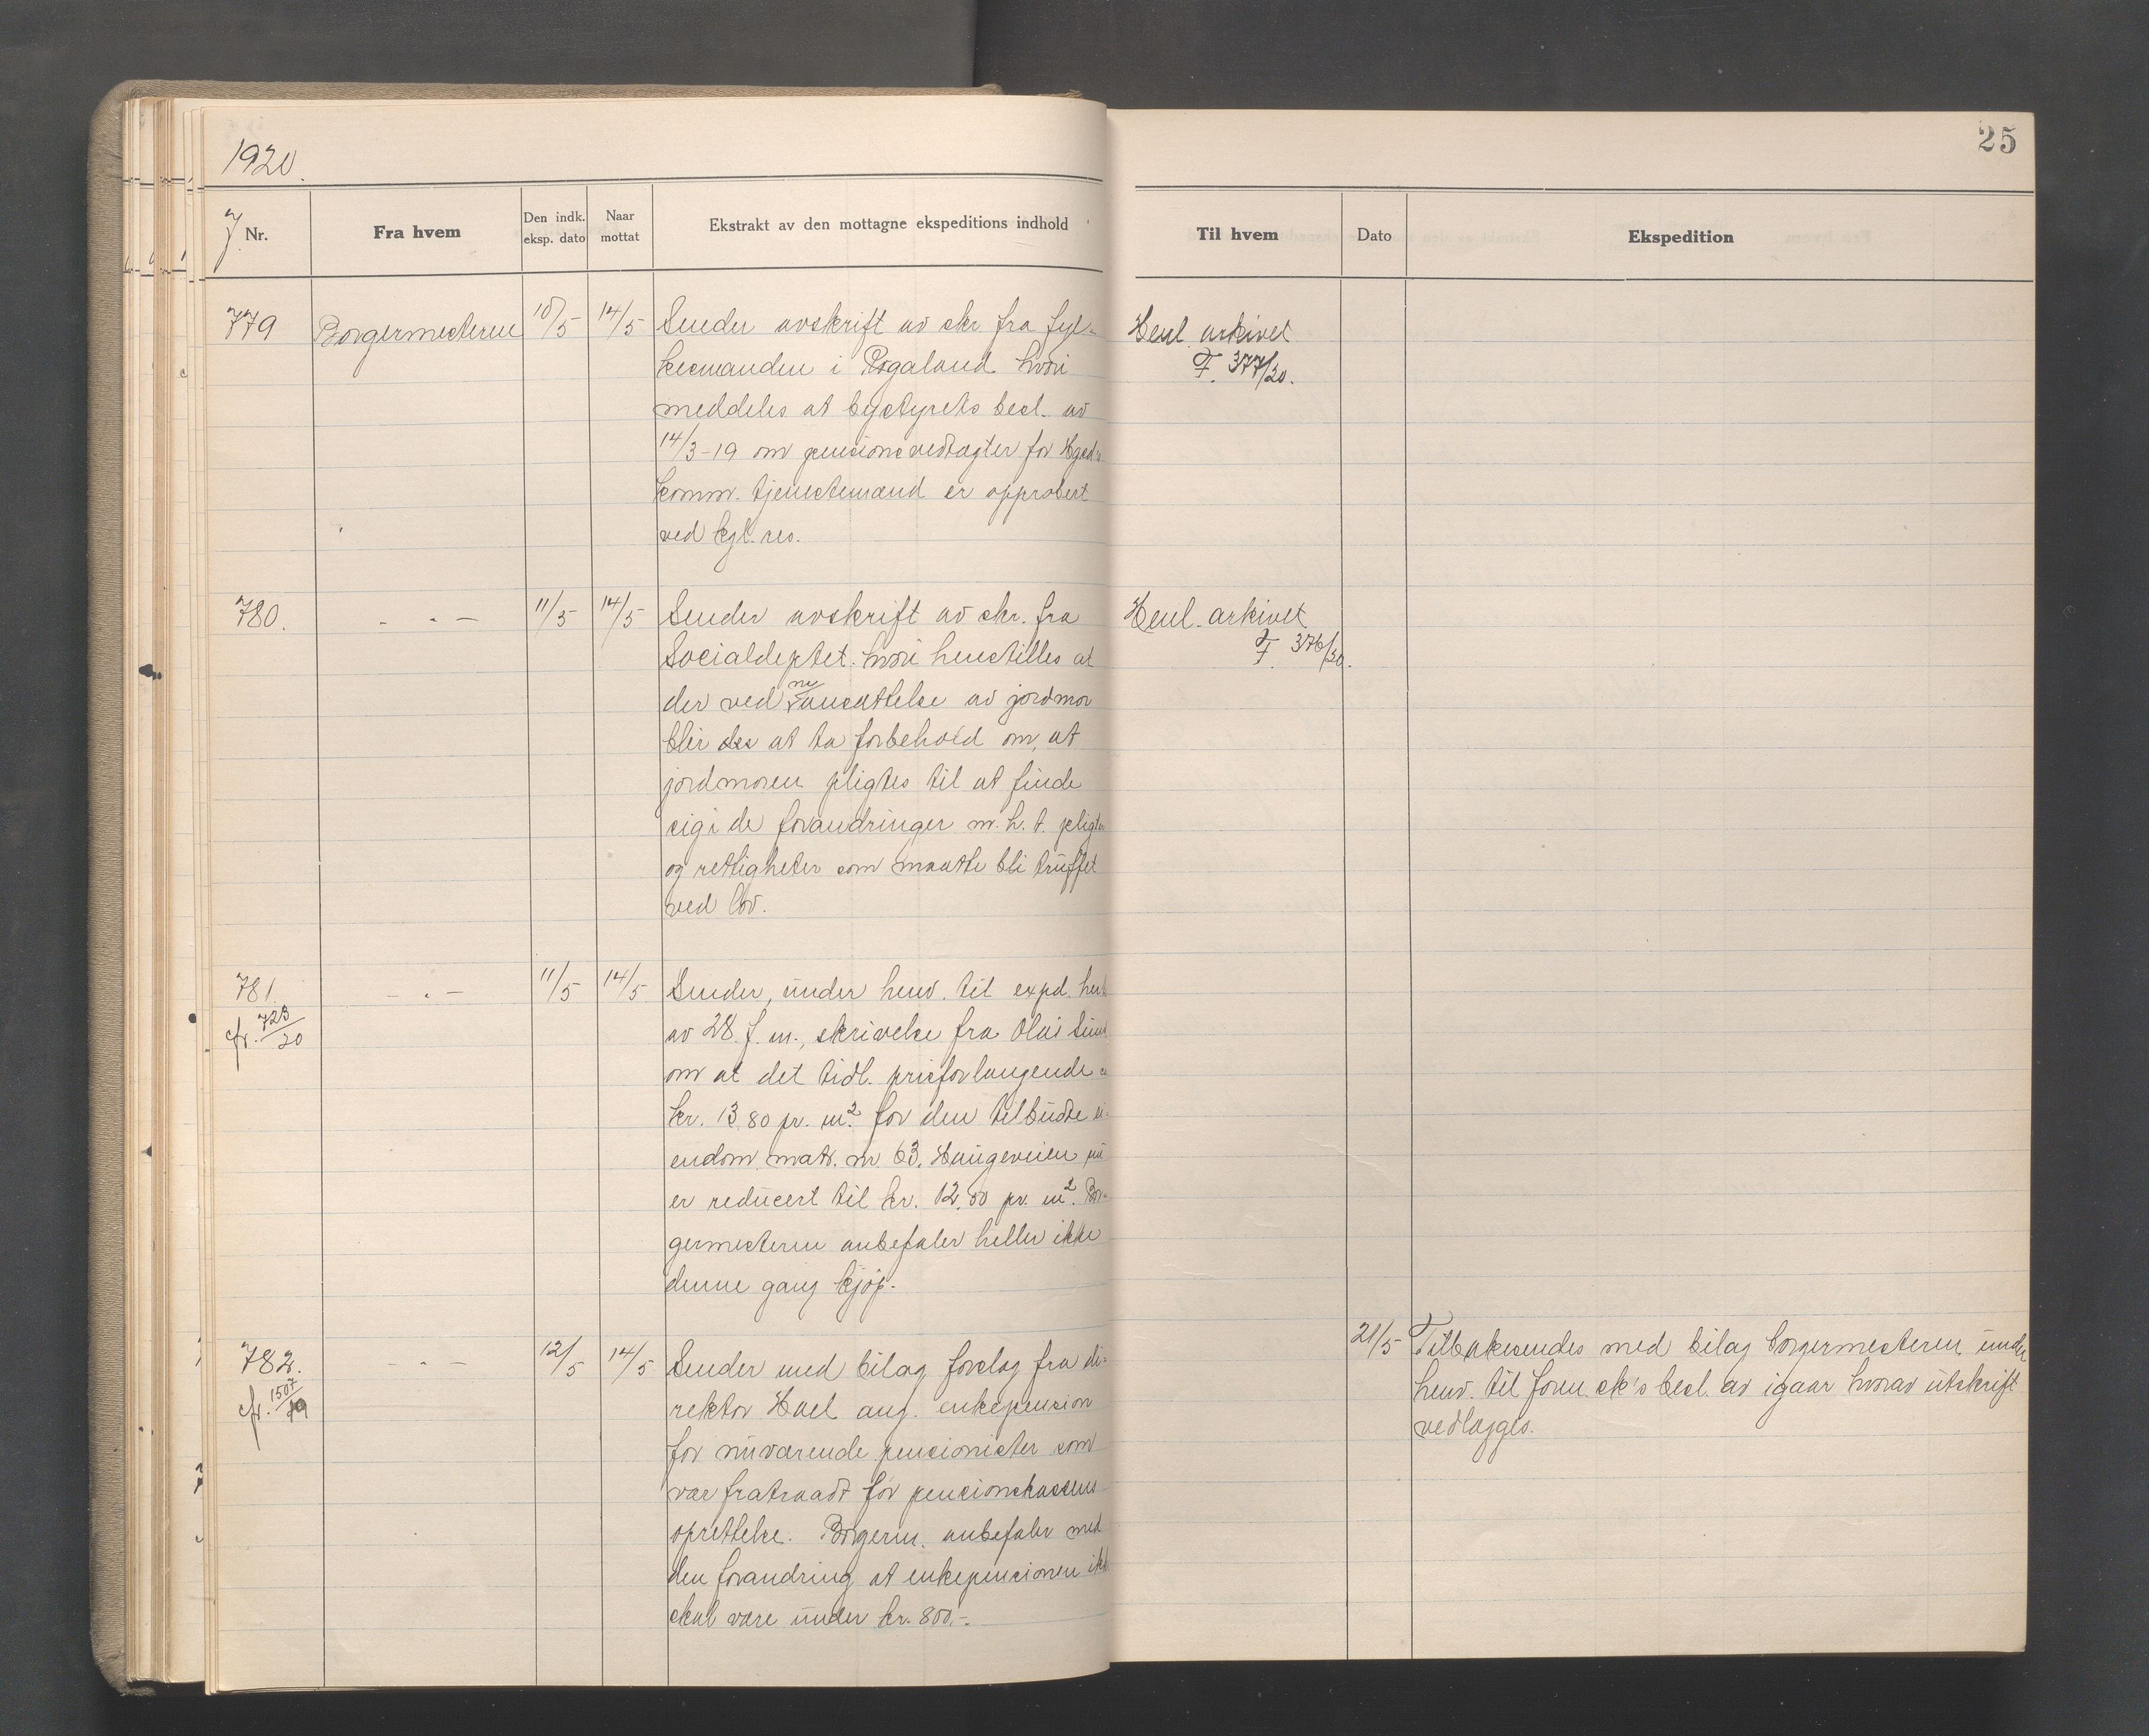 1920.
25
J. Nr.
Fra hvem
Den indk. eksp. dato
Naar mottat
Ekstrakt av den mottagne ekspeditions indhold
Til hvem
Dato
Ekspedition
779 Borgermesteren 10/5 14/5 Sender avskrift av skr. fra fyl-
kesmanden i Rogaland hvori
meddeles at bystyrets besl. av
14/3-19 om pensionsvedtægter for Hgsds
komm. tjenestemænd er approbert
ved kgl. res.
Henl. arkivet
F. 377/20.
780. - " - 11/5 14/5 Sender avskrift av skr. fra
Socialdeptet. hvori henstilles at
der ved ny ansættelse av jordmor
blir des at ta forbehold om, at
jordmoren pligtes til at finde
sig i de forandringer m. h. t. pligter
og rettigheter som maatte bli truffet
ved lov.
Henl. arkivet
F. 376/20.
781 - " - 11/5 14/5 Sender, under henv. til expd. her
cfr. 723/20
av 28. f. m., skrivelse fra Olai
om at det tidl. prisforlangende
kr. 13,80 pr. m². for den tilbudte ei-
endom, matr. nr. 63. Haugeveien nu
er reducert til kr. 12,50 pr. m². Bor-
germesteren anbefaler heller ikke
denne gang kjøp.
782. - " - 12/5 14/5 Sender med bilag forslag fra di-
cfr. 1507/19
rektor Hael ang. enkepension
for nuværende pensionister som
var fratraadt før pensionskassens
oprettelse. Borgerm. anbefaler med
den forandring at enkepensionen ikke
skal være under kr. 800,-.
21/5 Tilbakesendes med bilag borgermesteren under
henv. til form.sk's besl. av igaar hvorav utskrift
vedlægges.